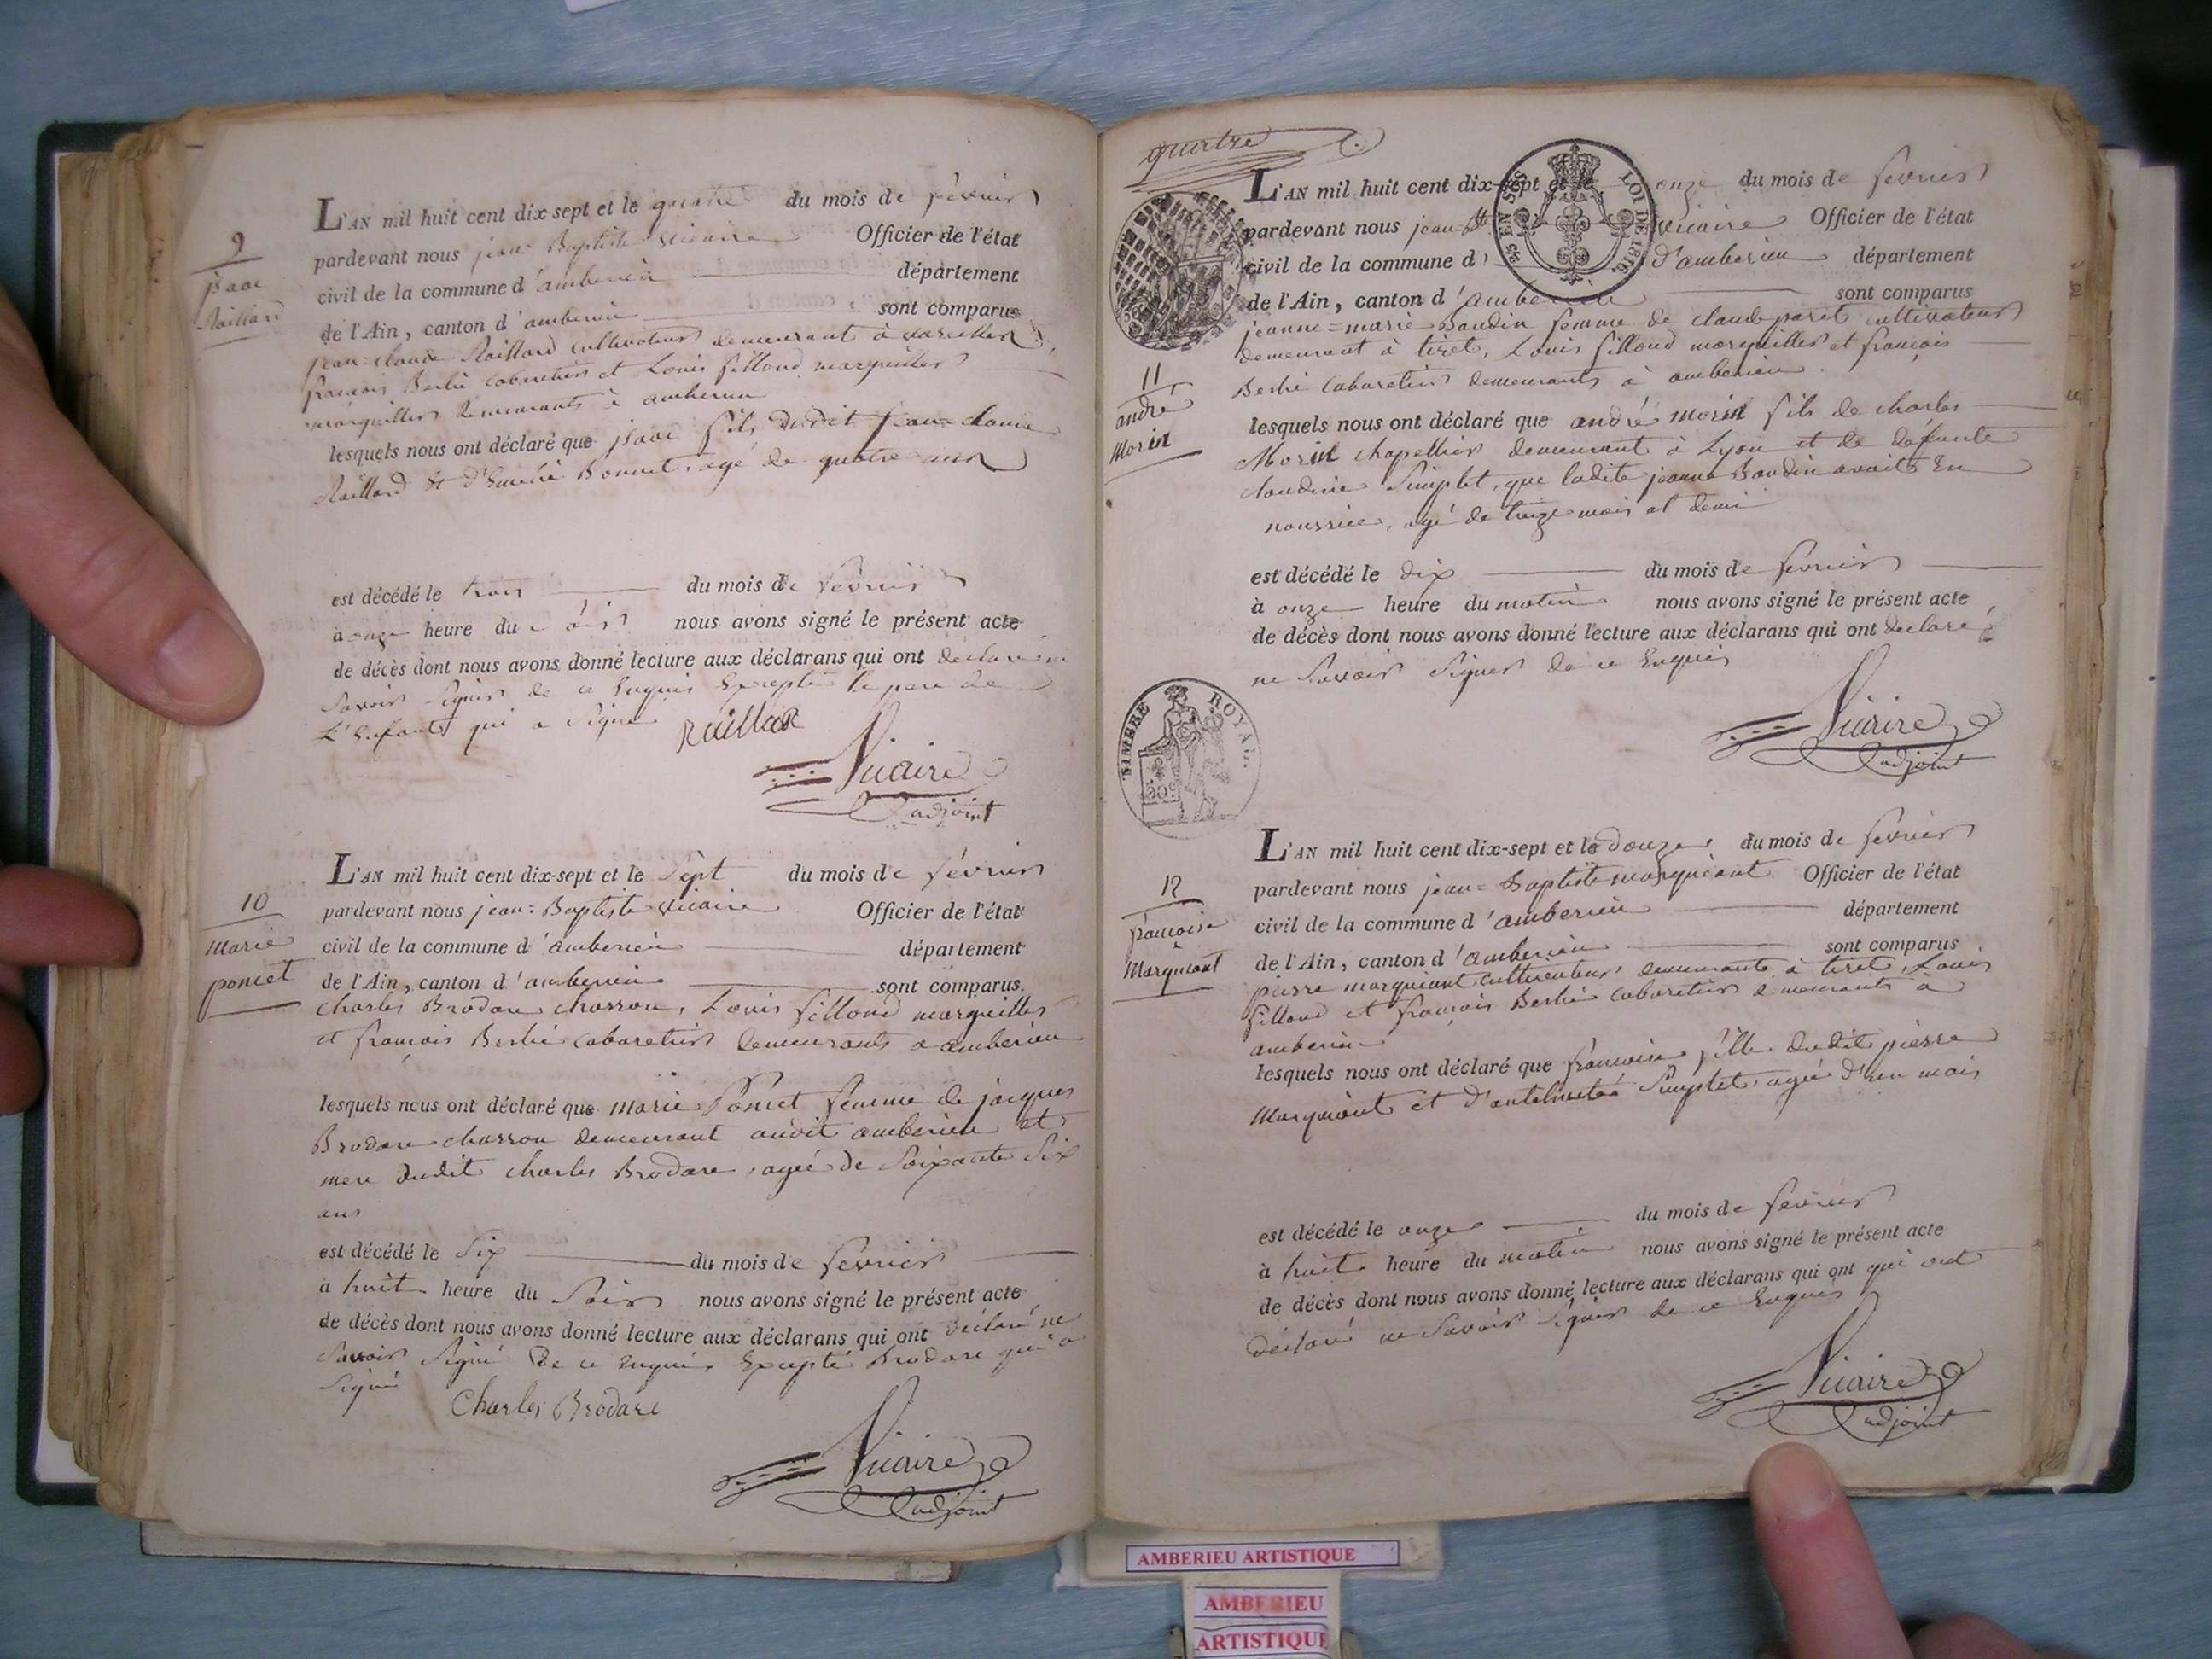 9
isaac
Raillard
L'AN mil huit cent dix-sept et le quatre du mois de février
pardevant nous jean Baptiste vicaire Officier de l'état
civil de la commune d'amberieu département
de l'Ain, canton d'amberieu sont comparus
jean-claude Raillard cultivateur demeurant à vareilles
françois Berlié cabaretier et Louis fillond marguillier
marguillier demeurants à amberieu
lesquels nous ont déclaré que isaac fils dudit jean claude
Raillard et d' Bonnet, agé de quatre ans
est décédé le trois du mois de février
à onze heure du nous avons signé le présent acte
de décès dont nous avons donné lecture aux déclarans qui ont déclaré ne
savoir signer de ce Enquis Excepté le pere de
L'Enfant qui a signé
Raillar
Vicaire
adjoint
10
marie
poncet
L'AN mil huit cent dix-sept et le sept du mois de février
pardevant nous jean-Baptiste vicaire Officier de l'état
civil de la commune d'amberieu département
de l'Ain, canton d'amberieu sont comparus
charles Brodare charron, Louis fillond marguillier
et françois Berlié cabaretier demeurants a amberieu
lesquels nous ont déclaré que marie Poncet femme de jacques
Brodare charron demeurant audit amberieu et
mere dudit charles Brodare, agée de soixante six
ans
est décédé le six du mois de février
à huit heure du soir nous avons signé le présent acte
de décès dont nous avons donné lecture aux déclarans qui ont déclaré ne
savoir signé de ce Enquis Excepté Brodare qui a
signé
Charles Brodare
Vicaire
adjoint
quatre
EN SUS
LOI DE 1816
L'AN mil huit cent dix-sept et le onze du mois de février
pardevant nous jean-Bte vicaire Officier de l'état
civil de la commune d' d'amberieu département
de l'Ain, canton d'amberieu sont comparus
jeanne-marie Baudin femme de claude paret cultivateur
demeurant à tiret, Louis fillond marguillier et françois
Berlié cabaretier demeurants à amberieu.
11
andré
Morin
lesquels nous ont déclaré que andré morin fils de charles
Morin chapellier demeurant à Lyon et de défunte
claudine Simplet, que ladite jeanne Baudin avait En
nourrice, agé de treize mois et demi
est décédé le dix du mois de février
à onze heure du matin nous avons signé le présent acte
de décès dont nous avons donné lecture aux déclarans qui ont déclaré
ne savoir signer de ce Enquis
Vicaire
adjoint
TIMBRE ROYAL
50c
12
françoise
Marquiant
L'AN mil huit cent dix-sept et le douze du mois de février
pardevant nous jean-Baptiste marquiant Officier de l'état
civil de la commune d'amberieu département
de l'Ain, canton d'amberieu sont comparus
pierre marquiant cultivateur demeurant à tiret, Louis
fillond et françois Berlié cabaretier demeurants à
amberieu
lesquels nous ont déclaré que francoise fille dudit pierre
Marquiant et d' Simplet, agée d'un mois
est décédé le onze du mois de février
à huit heure du matin nous avons signé le présent acte
de décès dont nous avons donné lecture aux déclarans qui ont qui ont
déclaré ne savoir signer de ce Enquis
Vicaire
adjoint
AMBERIEU ARTISTIQUE
AMBERIEU
ARTISTIQUE